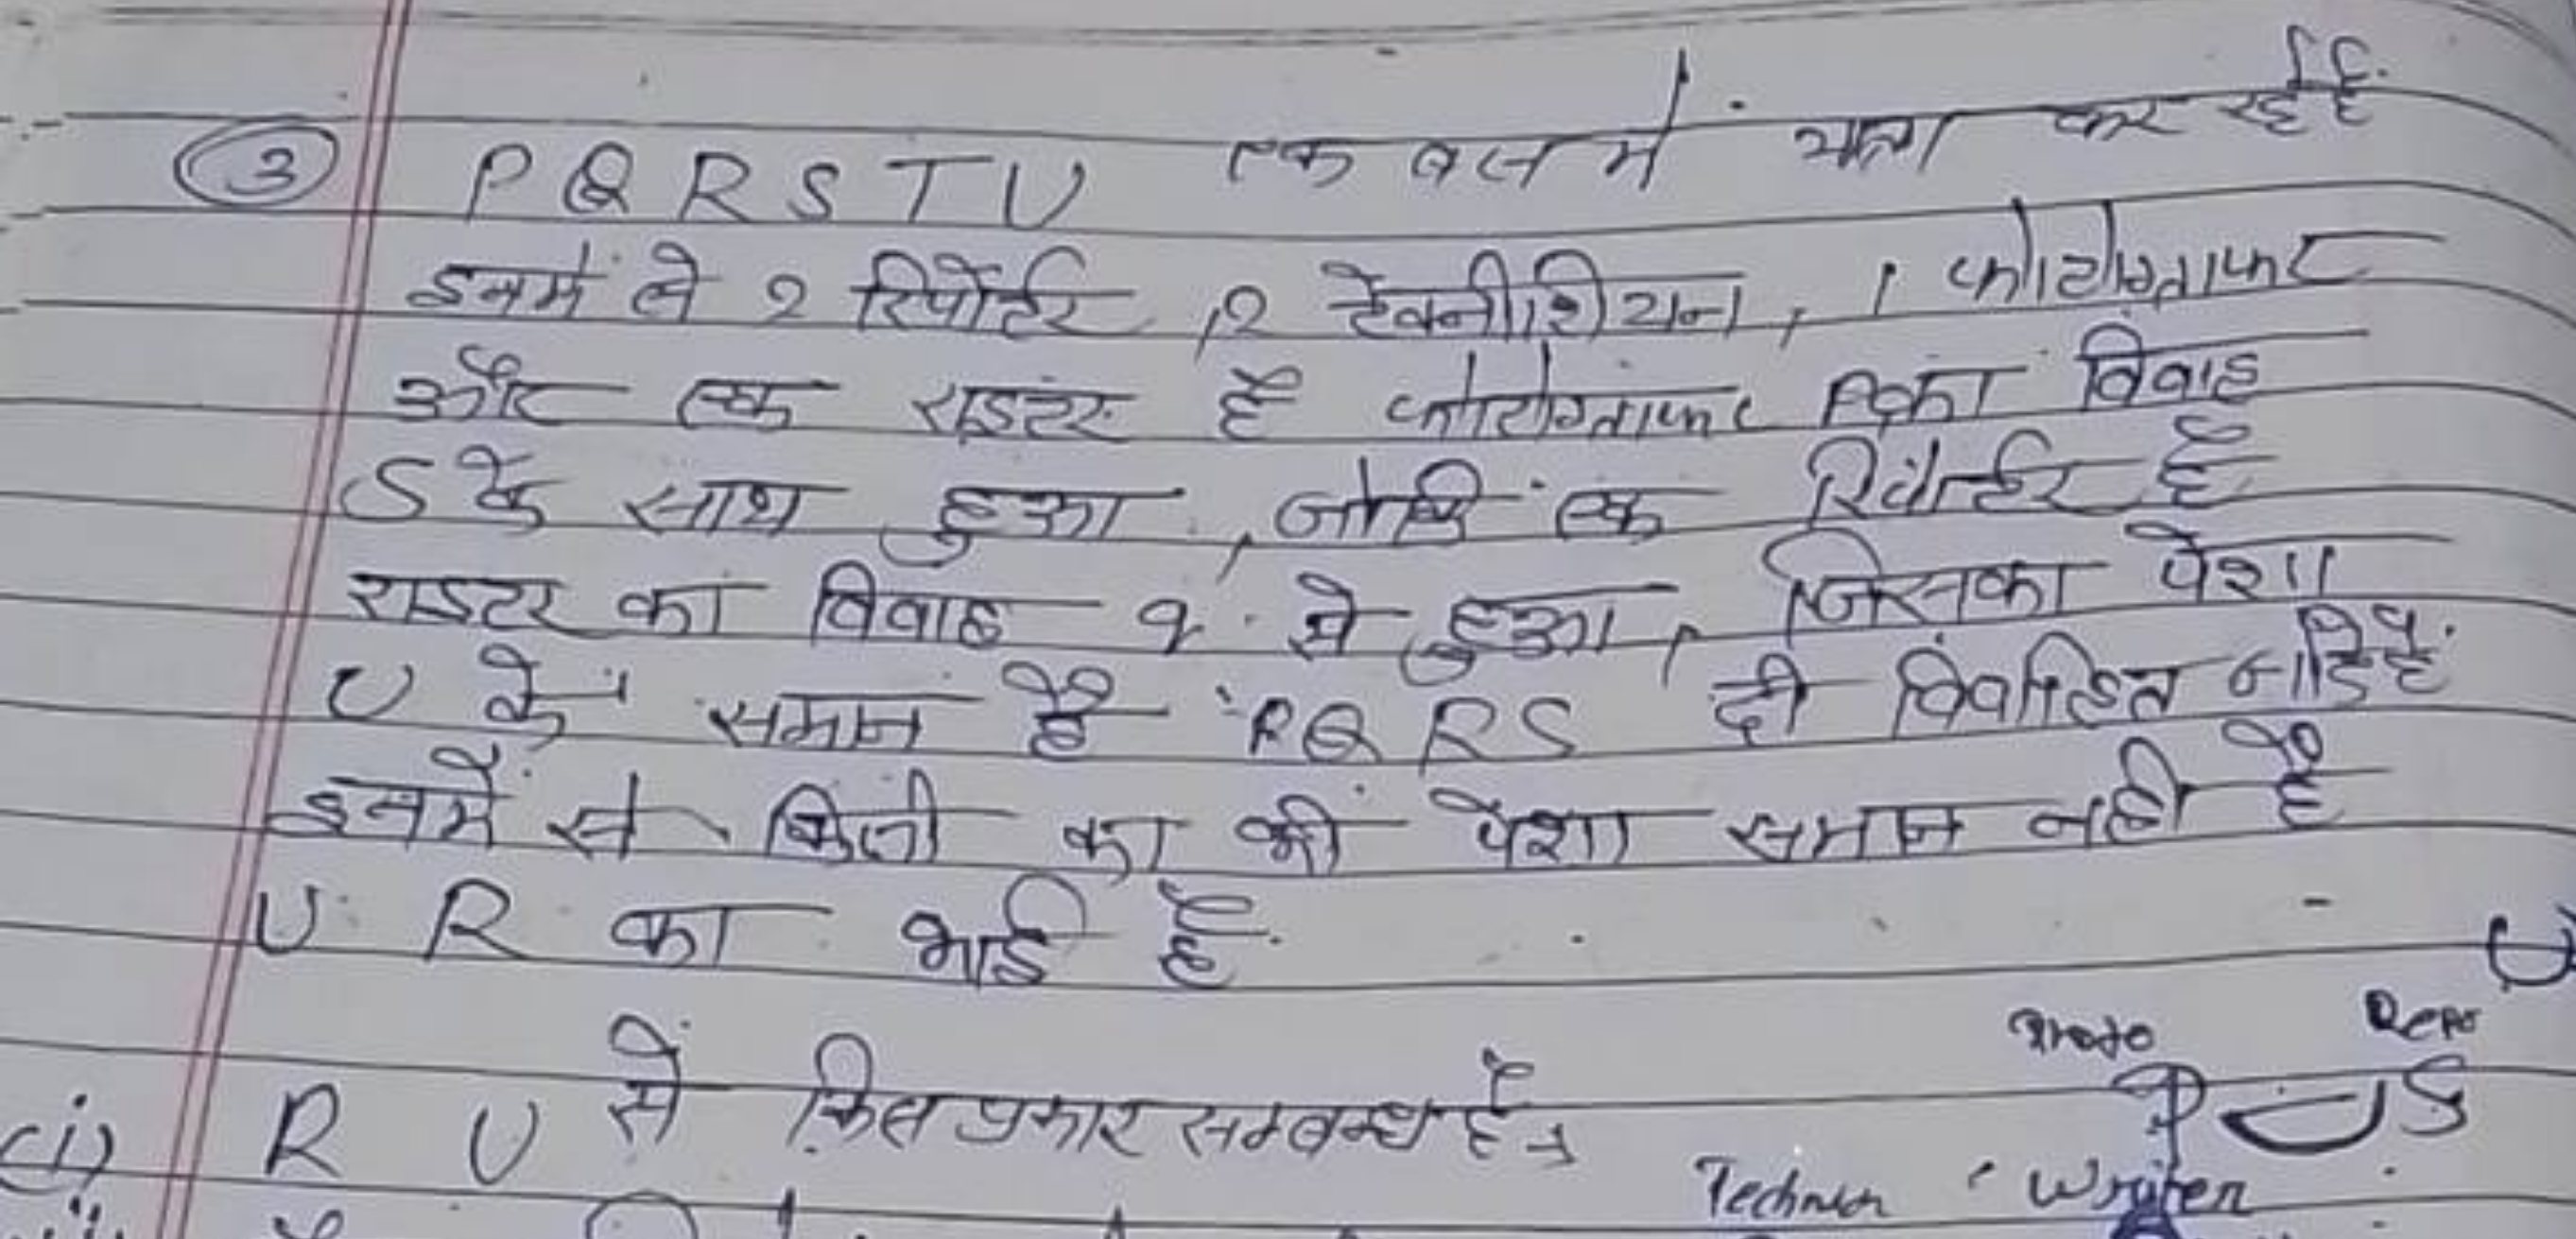 ③ P Q R S T U एक बस में यात्रा कर रहे हैं.
इनमें से 2 रिपोर्टर, 2 टेक्नीशियन, 1 फोटोग्राफर
और एक राइटर है फोटोग्राफर P का विवाह
S के साथ हुआ, जोकि एक रिपोर्टर है
राइटर का विवाह Q से हुआ, जिसका पेशा
U के समान है P Q R S दो विवाहित जोड़े हैं.
इनमें से किसी का भी पेशा समान नही है
U R का भाई है.
(i) R U से किस प्रकार सम्बन्ध है
Photo Repo
P S
Technisn Writer